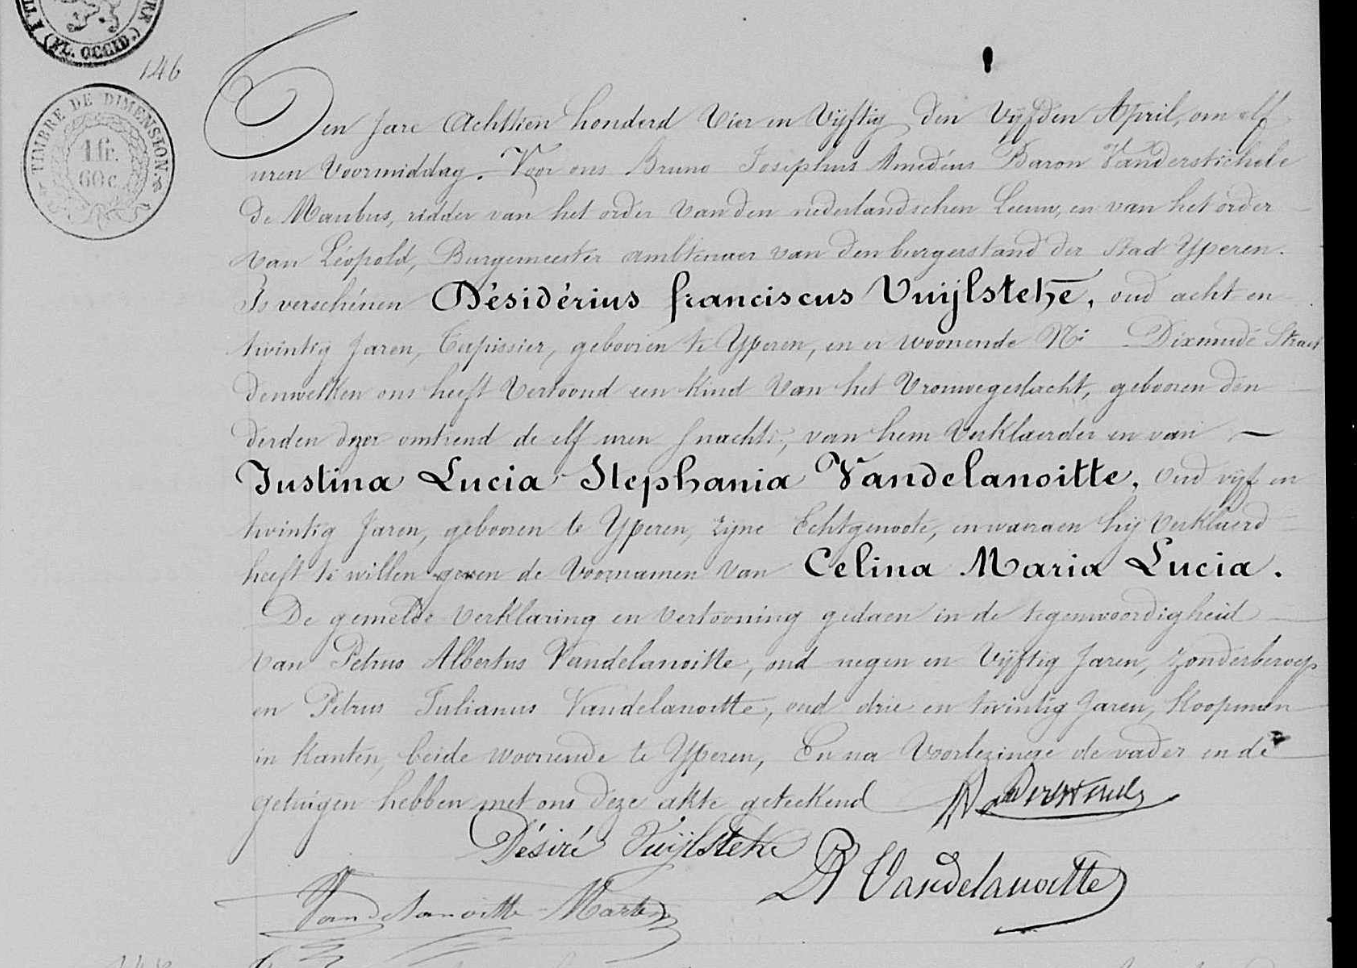 (FL. OCCID.)
146
TIMBRE DE DIMENSION
1 fr.
60 c.
Den Jare Achttien honderd Vier en Vijftig, den Vijfden April, om elf
uren Voormiddag. Voor ons Bruno Josephus Amedéus Baron Vanderstichele
de Maubus, ridder van het order van den nederlandschen Leeuw, en van het order
van Léopold, Burgemeester ambtenaer van den burgerstand der Stad Yperen.
Is verschénen Désidérius franciscus Vuijlsteke, oud acht en
twintig Jaren, Tapissier, gebooren te Yperen, en er woonende Nr Dixmude Straet
denwelken ons heeft Vertoond een kind van het Vrouwegeslacht, gebooren den
derden dezer omtrend de elf uren snachts, van hem Verklaerder en van
Justina Lucia Stephania Vandelanoitte, Oud vijf en
twintig Jaren, gebooren te Yperen, zyne Echtgenoote, en waeraen hij Verklaerd
heeft te willen geven de Voornamen van Celina Maria Lucia.
De gemelde verklaring en vertooning gedaen in de tegenwoordigheid
van Petrus Albertus Vandelanoitte, oud negen en Vijftig Jaren, zonder beroep
en Petrus Julianus Vandelanoitte, oud drie en twintig Jaren, Koopman
in kanten, beide woonende te Yperen, En na Voorlezinge de vader en de
getuigen hebben met ons deze akte geteekend
Désiré Vuijlsteke
P Vandelanoitte
Vandelanoitte-Marten